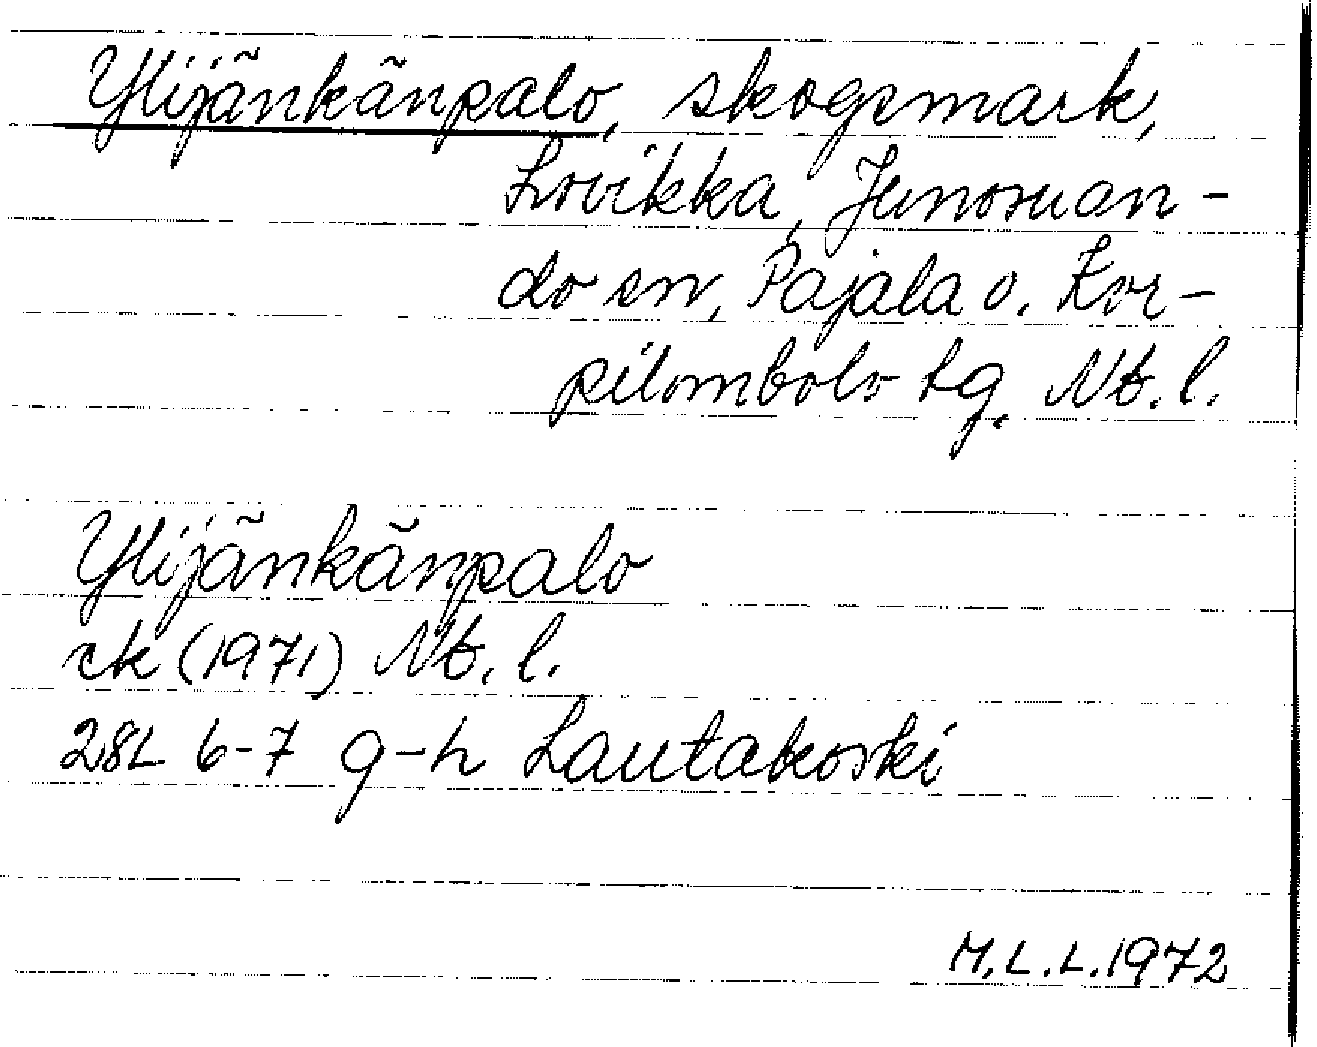 Ylijänkänpalo, skogsmark,
Lovikka, Junosuan-
do sn, Pajala o. Kor-
pilombolo tg. Nb. l.
Ylijänkänpalo
ek (1971) Nb. l.
28L 6-7 g-h Lautakoski
M.L.L.1972